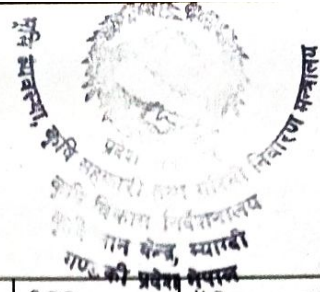 भूमि व्यवस्था, कृषि सहकारी तथा गरिबी निवारण मन्त्रालय
कृषि विकास निर्देशनालय
ज्ञान केन्द्र, म्याग्दी
गण्डकी प्रदेश, नेपाल